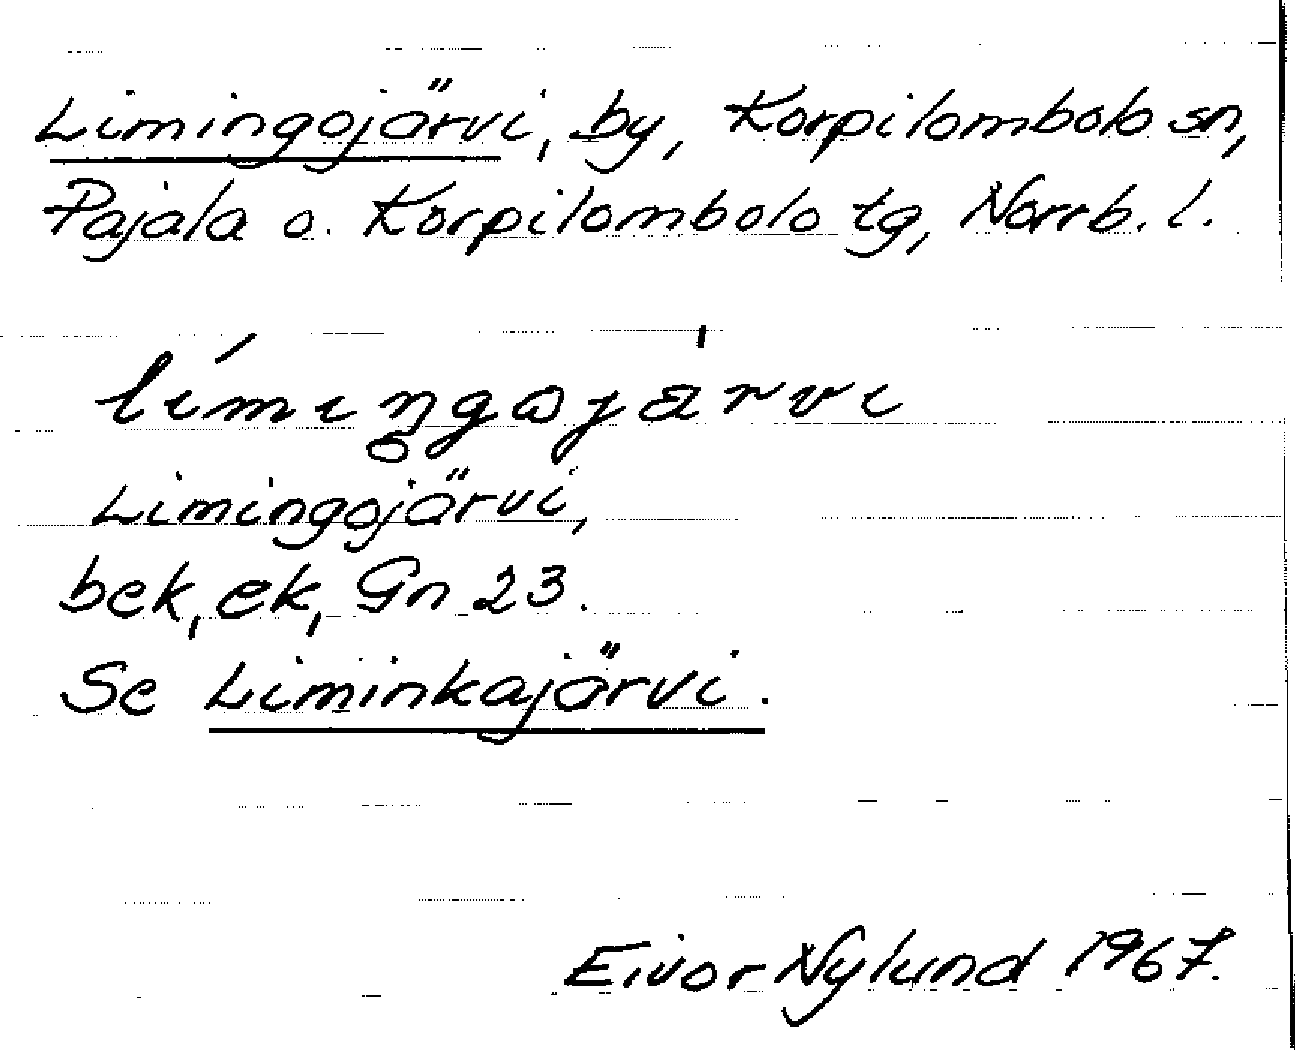 Limingojärvi, by, Korpilombolo sn,
Pajala o. Korpilombolo tg, Norrb. l.
limiŋgojärvi
Limingojärvi,
bek, ek, Gn 23.
Se Liminkajärvi.
Eivor Nylund 1967.